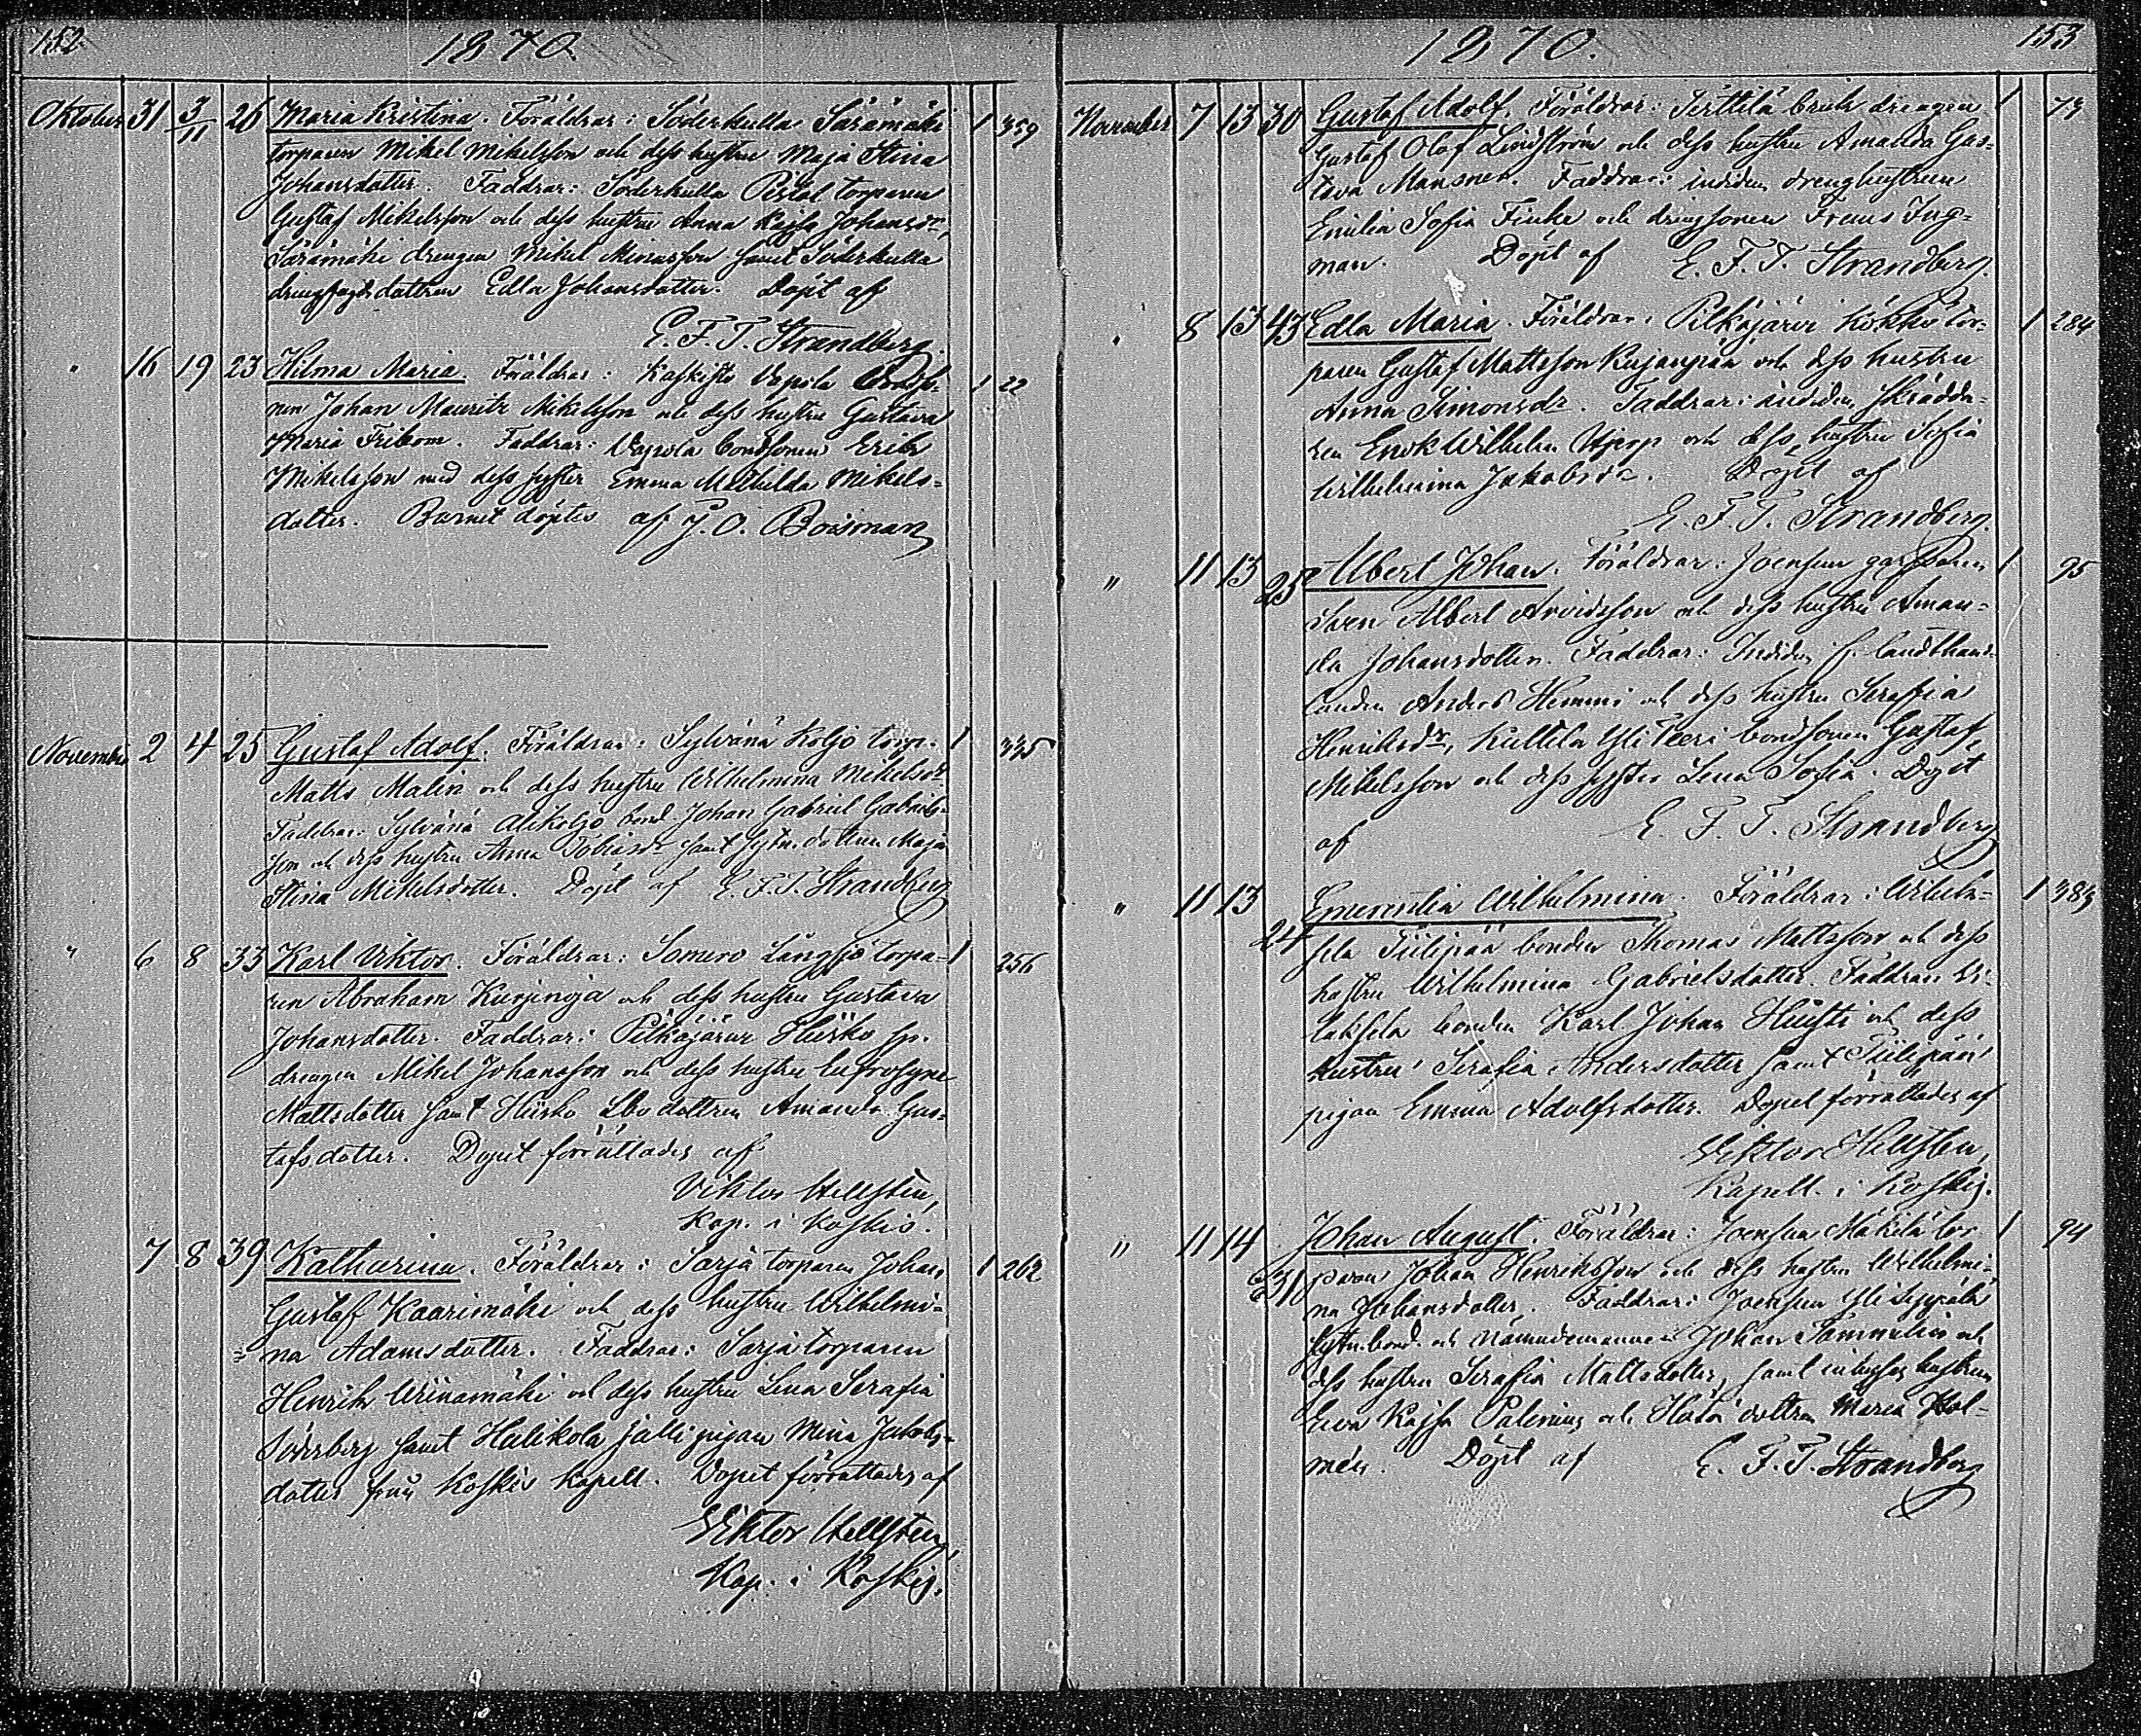 152
1870.
Oktober 31 3/11 26 Maria Kristina. Föräldrar: Söderkulla Säràmäki 1 359
torparen Mikel Mikelsson och dess hustru Maja Stina
Johansdotter. Faddrar: Söderkulla Pistol torparen
Gustaf Mikelsson och dess hustru Anna Kajsa Johansdr,
Säràmäki drengen Mikel Minasson samt Söderkulla
drengfogdsdottren Edla Johansdotter. Döpt af
E. F. T. Strandberg.
" 16 19 23 Hilma Maria. Föräldrar: Koskisto Vapola bondso- 1 22
nen Johan Mauritz Mikelsson och dess hustru Gustava
Maria Fribom. Faddrar: Vapola bondsonen Erik
Mikelsson med dess syster Emma Mathilda Mikels-
dotter. Barnet döptes af J. O. Boisman
November 2 4 25 Gustaf Adolf. Föräldrar: Sylvänä Koljo torp. 1 335
Matts Malin och dess hustru Wilhelmina Mikelsdr
Faddrar: Sylvänä Alikoljo bond. Johan Gabriel Gabriels-
son och dess hustru Anna Tobiasdr samt sytn. dottren Maja
Stina Mikelsdotter. Döpt af E. F. T. Strandberg
" 6 8 33 Karl Viktor. Föräldrar: Somero Långsjö torpa- 1 256
ren Abraham Kurjenoja och dess hustru Gustava
Johansdotter. Faddrar: Pitkäjärvi Hüsko sp.
drengen Mikel Johansson och dess hustru Eufrosyne
Mattsdotter samt Hiisko Lbo dottren Amanda Gus-
tafsdotter. Dopet förrättades af
Viktor Hellsten,
Kap. i Koskis.
7 8 39 Katharina. Föräldrar: Sarja torparen Johan 1 262
Gustaf Kaarimäki och dess hustru Wilhelmi-
na Adamsdotter. Faddrar: Sarja torparen
Henrik Wiinamäki och dess hustru Lena Serafia
Söderberg samt Halikola Jälli pigan Mina Jakobs-
dotter från Koskis Kapell. Dopet förrättades af
Viktor Hellsten,
Kap. i Koskis.
153
1870.
November 7 13 30 Gustaf Adolf. Föräldrar: Terttilä bruk drengen 1 73
Gustaf Olof Lindström och dess hustru Amanda Gus-
tava Mansner. Faddrar: indiden drenghustrun
Emilia Sofia Finke och drengsonen Frans Ing-
man. Döpt af E. F. T. Strandberg.
" 8 13 43 Edla Maria. Föräldrar: Pitkäjärvi Kokko tor- 1 284
paren Gustaf Mattsson Kujanpää och dess hustru
Anna Simonsdr. Faddrar: indiden skrädda-
ren Enok Wilhelm Hjerp och dess hustru Sofia
Wilhelmina Jakobsdr. Döpt af
E. F. T. Strandberg.
" 11 13 25 Albert Johan. Föräldrar: Joensuu garfvaren 1 95
Sven Albert Arvidsson och dess hustru Aman-
da Johansdotter. Faddrar: Indiden f. landthand-
landen Anders Hemmi och dess hustru Serafia
Henriksdr, Kultela Yli Peeri bondsonen Gustaf
Mikelsson och dess syster Lena Sofia. Döpt
af E. F. T. Strandberg
" 11 13 24 Emerentia Wilhelmina. Föräldrar: Wiluk- 1 383
sela Tiilipää bonden Thomas Mattsson och dess
hustru Wilhelmina Gabrielsdotter. Faddrar: Wi-
luksela bonden Karl Johan Huisti och dess
hustru Serafia Andersdotter samt Tiilipää
pigan Emma Adolfsdotter. Dopet förrättades af
Viktor Hellsten,
Kapell. i Koskis.
" 11 14 31 Johan August. Föräldrar: Joensuu Mäkilä tor- 1 94
paren Johan Henriksson och dess hustru Wilhelmi-
na Johansdotter. Faddrar: Joensuu Yli Seppälä
sytn. bond. och Nämndemannen Johan Sammelin och
dess hustru Serafia Mattsdotter, samt inhyses hustrun
Eva Kajsa Palenius och dottren Maria Hol-
mén. Döpt af E. F. T. Strandberg